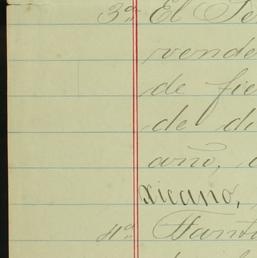 3ª El Se
vende
de fie
de di
año, 
xicano,
4ª Tanto